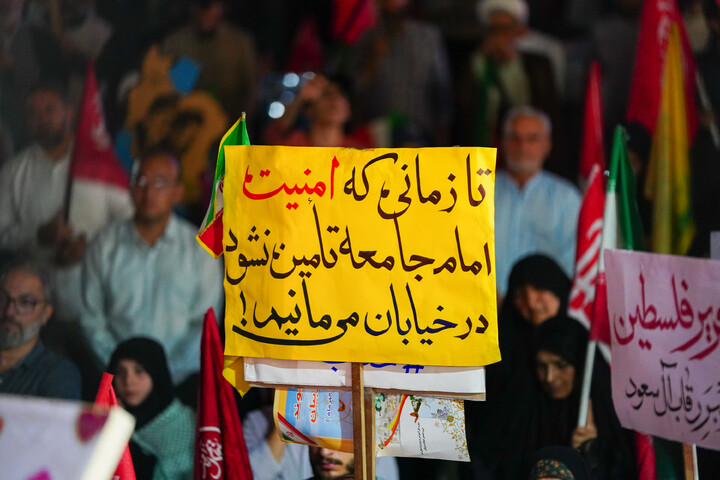 تا زمانی که امنیت
امام جامعه تأمین نشود
در خیابان می‌مانیم!
فلسطین
رقاب آل سعود